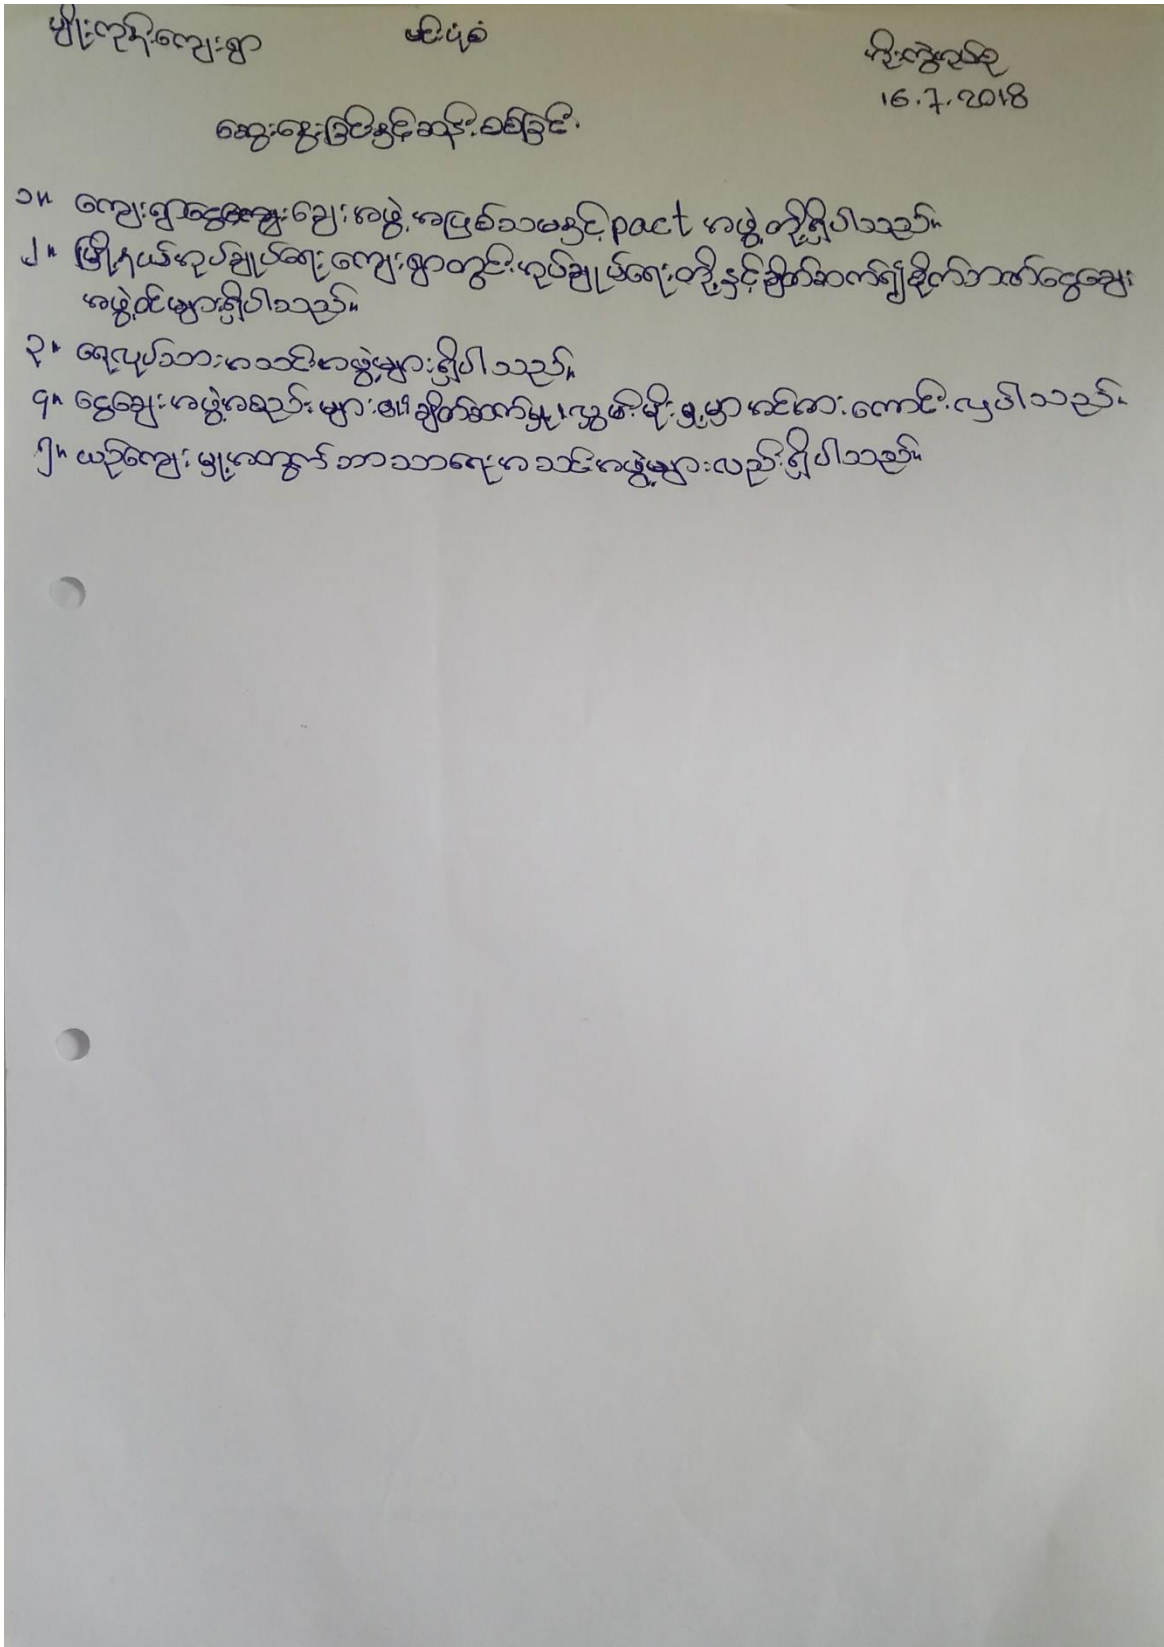 မျိုးကုန်းကျေးရွာ မင်းပုံစံ
16.7.2018
ဆွေးနွေးခြင်းနှင့်ဆန်းစစ်ခြင်း
၁။ ကျေးရွာငွေချေးအဖွဲ့အဖြစ်သမနှင့် pact အဖွဲ့တို့ရှိပါသည်။
၂။ မြို့နယ်အုပ်ချုပ်ရေး ကျေးရွာတွင်းအုပ်ချုပ်ရေးတို့နှင့်ချိတ်ဆက်၍စိုက်ဘဏ်ငွေချေး
အဖွဲ့ဝင်များရှိပါသည်။
၃။ ရေလုပ်သားအသင်းအဖွဲ့များရှိပါသည်။
၄။ ငွေချေးအဖွဲ့အစည်းများ ချိတ်ဆက်မှု၊ လွှမ်းမိုးမှုမှာအင်အားကောင်းလှပါသည်။
၅။ ယဉ်ကျေးမှုအတွက်ဘာသာရေးအသင်းအဖွဲ့များလည်းရှိပါသည်။